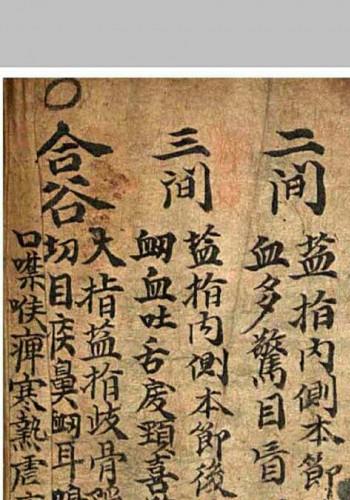 二间
盐指内側本節
血多驚目
三间
盐指内側本節後
衂血吐舌戾頸喜
合谷
大指盐指歧骨
切目疾鼻衂耳鳴
口噤喉痹寒熱瘧